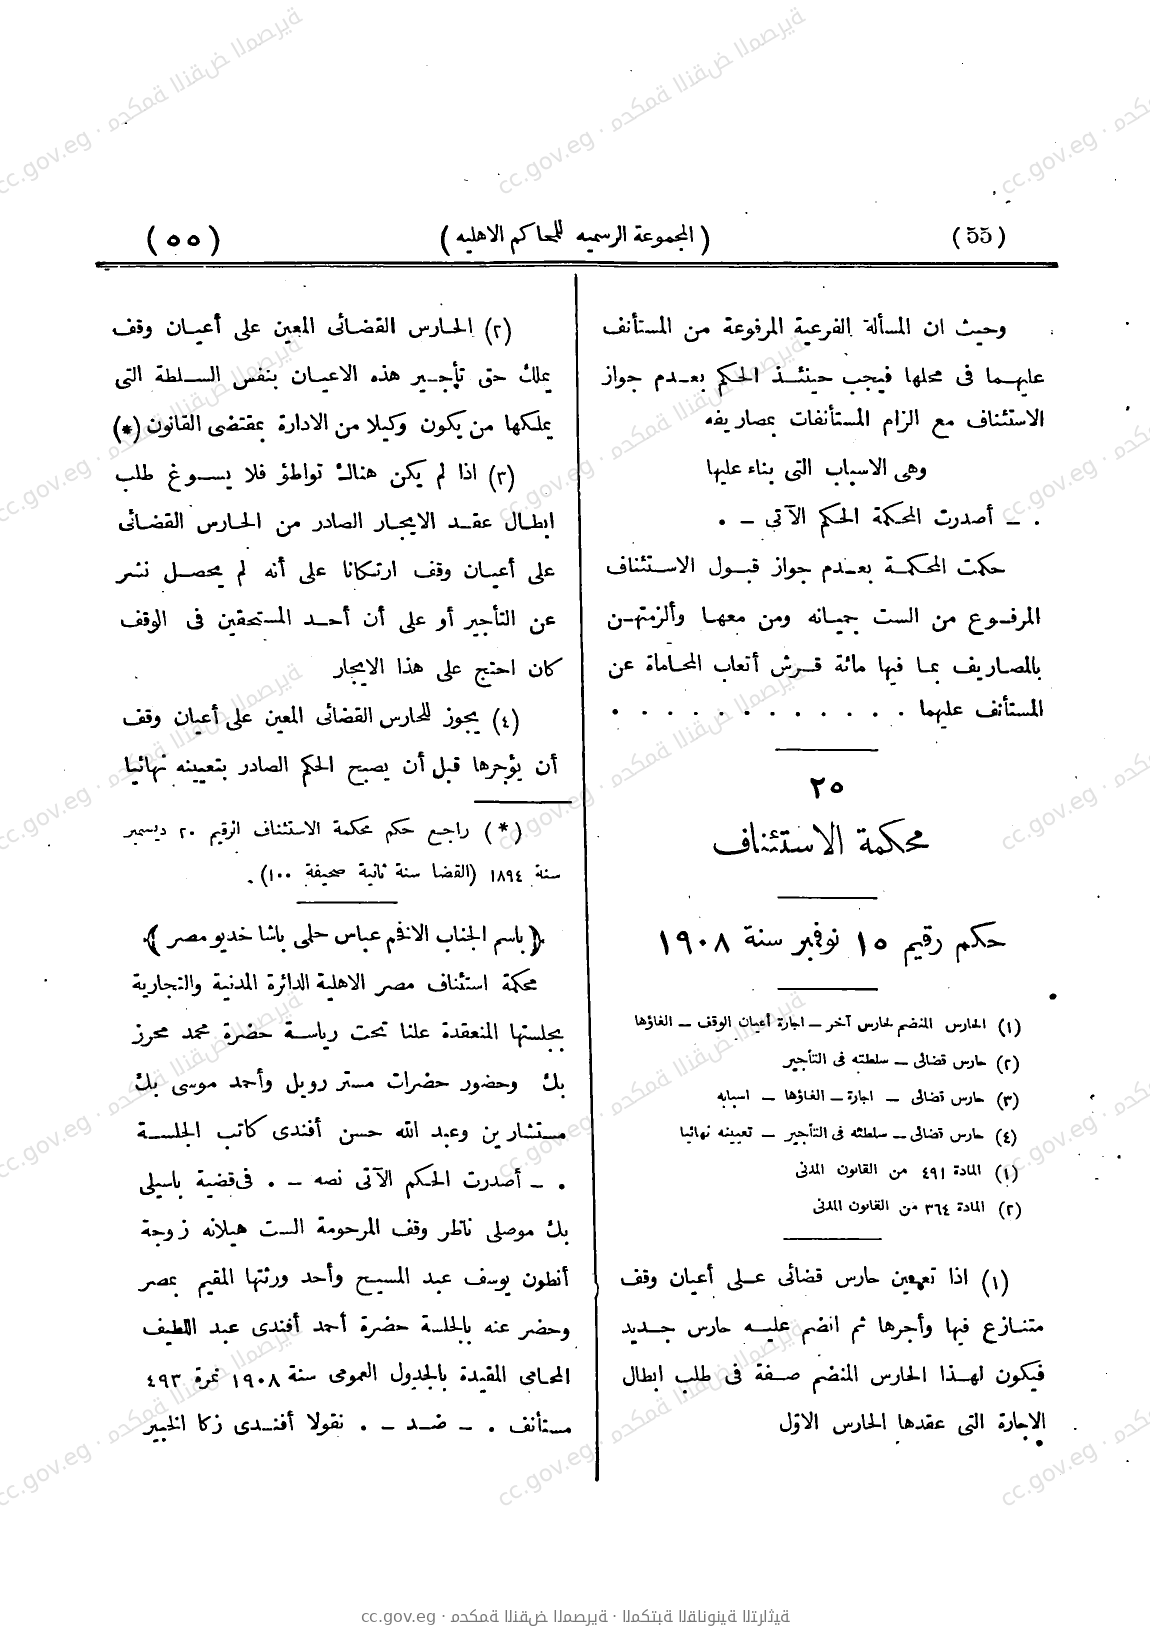 (55) (المجموعة الرسميه للمحاكم الاهليه) (٥٥)
وحيث ان المسألة الفرعية المرفوعة من المستأنف
عليهما فى محلها فيجب حينئذ الحكم بعدم جواز
الاستئناف مع الزام المستأنفات بمصاريفه
وهى الاسباب التى بناء عليها
. — أصدرت المحكمة الحكم الآتى — .
حكمت المحكمة بعدم جواز قبول الاستئناف
المرفوع من الست جميانه ومن معها وألزمتهن
بالمصاريف بما فيها مائة قرش أتعاب المحاماة عن
المستأنف عليهما . . . . . . . . . . . .
٢٥
محكمة الاستئناف
حكم رقيم ١٥ نوفمبر سنة ١٩٠٨
(١) الحارس المنضم لحارس آخر — اجارة أعيان الوقف — الغاؤها
(٢) حارس قضائى — سلطته فى التأجير
(٣) حارس قضائى — اجارة — الغاؤها — اسبابه
(٤) حارس قضائى — سلطته فى التأجير — تعيينه نهائيا
(١) المادة ٤٩١ من القانون المدنى
(٢) المادة ٣٦٤ من القانون المدنى
(١) اذا تعين حارس قضائى على أعيان وقف
متنازع فيها وأجرها ثم انضم عليه حارس جديد
فيكون لهذا الحارس المنضم صفة فى طلب ابطال
الاجارة التى عقدها الحارس الاوّل
(٢) الحارس القضائى المعين على أعيان وقف
يملك حق تأجير هذه الاعيان بنفس السلطة التى
يملكها من يكون وكيلا من الادارة بمقتضى القانون (*)
(٣) اذا لم يكن هناك تواطؤ فلا يسوغ طلب
ابطال عقد الايجار الصادر من الحارس القضائى
على أعيان وقف ارتكانا على أنه لم يحصل نشر
عن التأجير أو على أن أحد المستحقين فى الوقف
كان احتج على هذا الايجار
(٤) يجوز للحارس القضائى المعين على أعيان وقف
أن يؤجرها قبل أن يصبح الحكم الصادر بتعيينه نهائيا
(*) راجع حكم محكمة الاستئناف الرقيم ٢٠ ديسمبر
سنة ١٨٩٤ (القضا سنة ثانية صحيفة ١٠٠).
﴿باسم الجناب الافخم عباس حلمى باشا خديو مصر﴾
محكمة استئناف مصر الاهلية الدائرة المدنية والتجارية
بجلستها المنعقدة علنا تحت رياسة حضرة محمد محرز
بك وحضور حضرات مستر رويل وأحمد موسى بك
مستشارين وعبد الله حسن أفندى كاتب الجلسة
. — أصدرت الحكم الآتى نصه — . فى قضية باسيلى
بك موصلى ناظر وقف المرحومة الست هيلانه زوجة
أنطون يوسف عبد المسيح وأحد ورثتها المقيم بمصر
وحضر عنه بالجلسة حضرة أحمد أفندى عبد اللطيف
المحامى المقيدة بالجدول العمومى سنة ١٩٠٨ نمرة ٤٩٣
مستأنف . — ضد — . نقولا أفندى زكا الخبير
cc.gov.eg · محكمة النقض المصرية · المكتبة القانونية التراثية